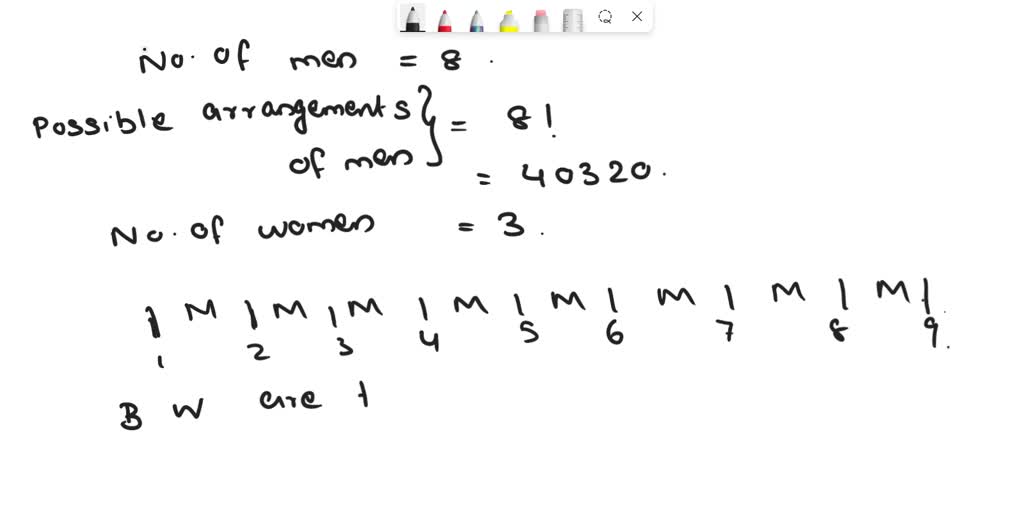 No. of men = 8.
Possible arrangements of men } = 8!
= 40320.
No. of women = 3.
| M | M | M | M | M | M | M | M |
1 2 3 4 5 6 7 8 9.
B W are t